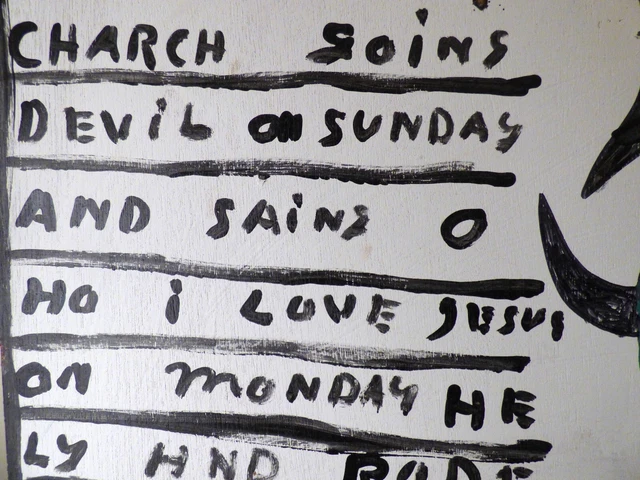 CHARCH GOINS
DEVIL ON SUNDAY
AND SAINS O
HO I LOVE JESUS
ON MONDAY HE
LY HND